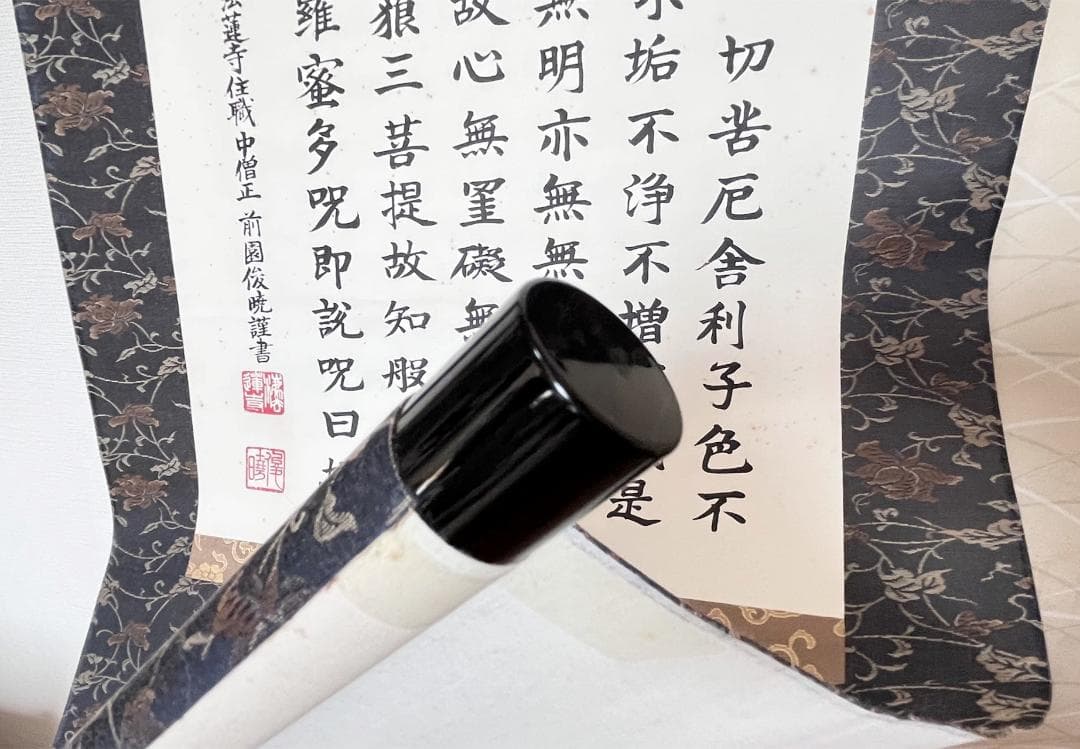 切苦厄舎利子色不
不垢不浄不増是
無明亦無無
故心無罣礙無
藐三菩提故知般
羅蜜多呪即説呪曰
法蓮寺住職 中僧正 前園俊暁謹書